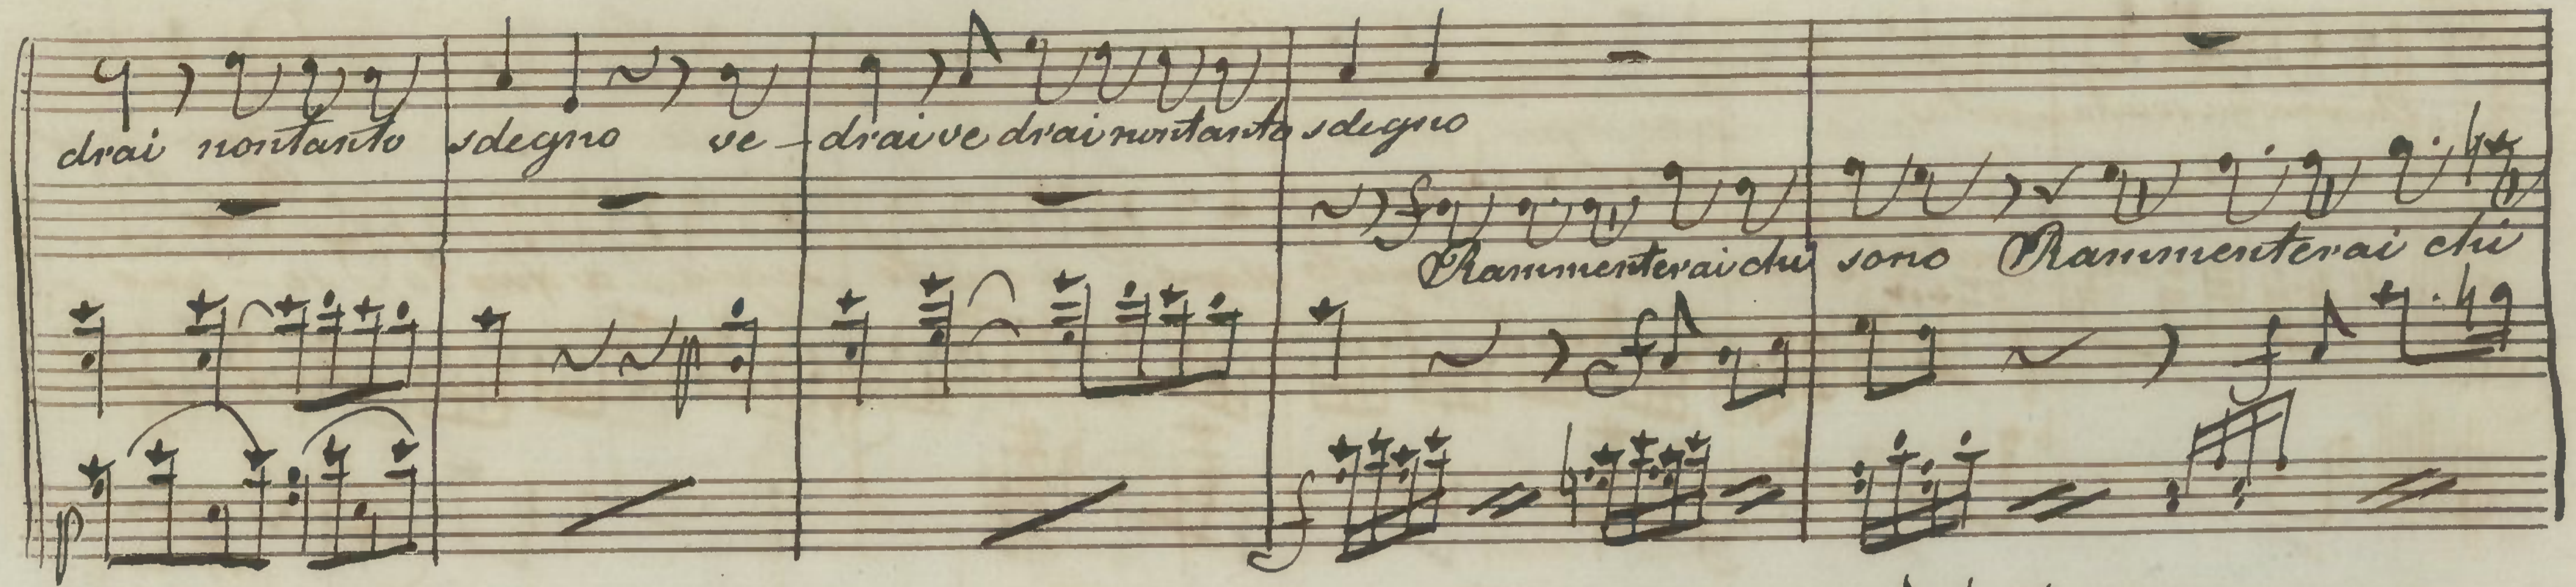 drai nontanto sdegno ve - drai ve drai nontanto sdegno
f
Rammenterai chi sono Rammenterai chi
f f
p f